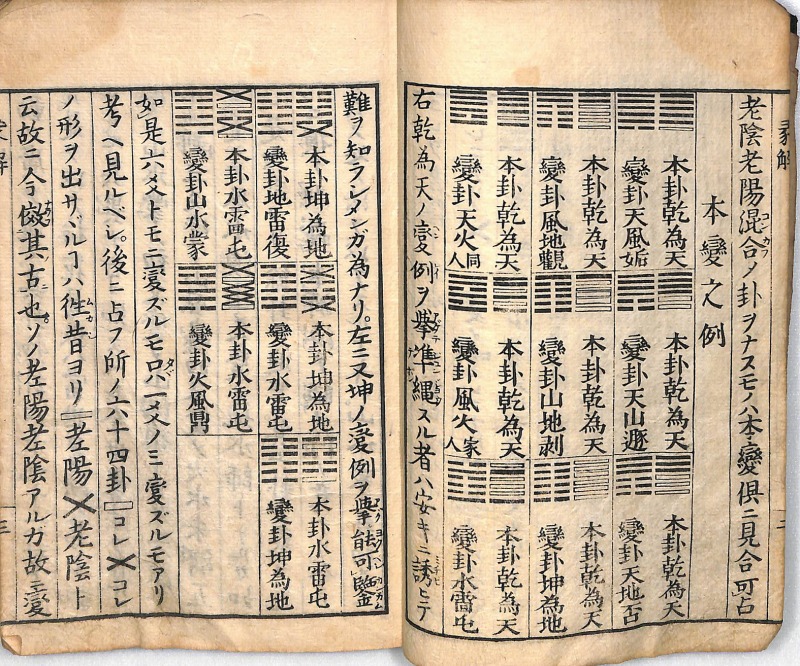 彖解
老陰老陽混合ノ卦ヲナスモノハ本變倶ニ見合可占
本變之例
本卦乾為天
變卦天風姤
本卦乾為天
變卦風地觀
本卦乾為天
變卦天火同人
本卦乾為天
變卦天山遯
本卦乾為天
變卦山地剥
本卦乾為天
變卦風火家人
本卦乾為天
變卦天地否
本卦乾為天
變卦坤為地
本卦乾為天
變卦水雷屯
右乾為天ノ變例ヲ擧準縄スル者ハ安キニ誘ヒテ
難ヲ知ランメンガ為ナリ。左ニ又坤ノ變例ヲ擧能可鑒
本卦坤為地
變卦地雷復
本卦水雷屯
變卦山水蒙
本卦坤為地
變卦水雷屯
本卦水雷屯
變卦火風鼎
本卦水雷屯
變卦坤為地
如是六爻トモニ變ズルモ只一爻ノミ變ズルモアリ
考ヘ見ルベシ。後ニ占フ所ノ六十四卦▭コレ╳コレ
ノ形ヲ出サヾルヿハ徃昔ヨリ▭老陽╳老陰ト
云故ニ今傚其古也。ソノ老陽老陰アルガ故ニ變